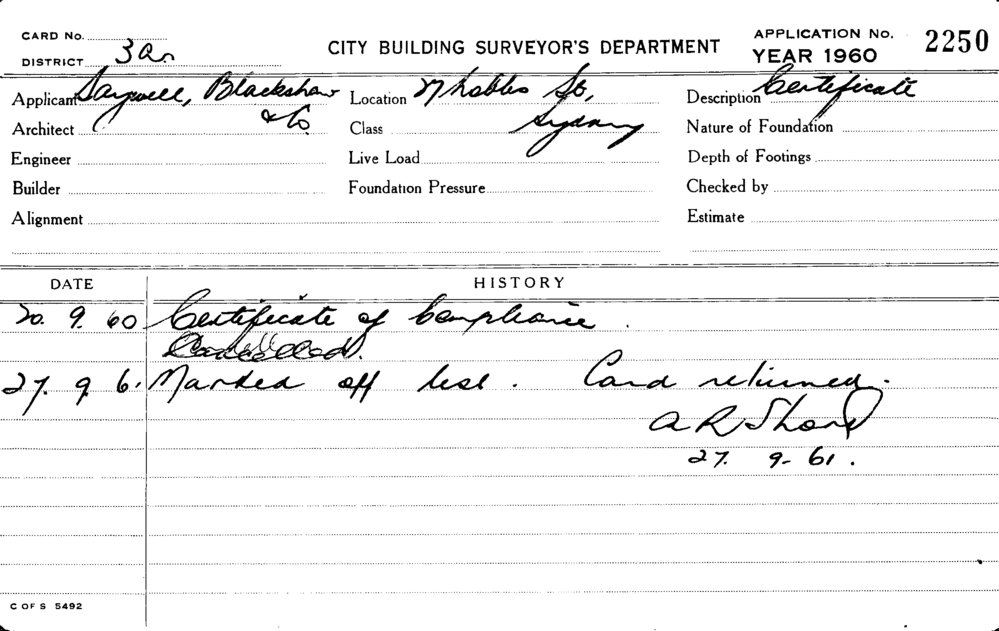 CARD No.
CITY BUILDING SURVEYOR'S DEPARTMENT
APPLICATION No. 2250
YEAR 1960
DISTRICT 3a.
Applicant Saywell, Blackshaw & Co.
Location St, Sydney
Description Certificate
Architect
Class
Nature of Foundation
Engineer
Live Load
Depth of Footings
Builder
Foundation Pressure
Checked by
Alignment
Estimate
DATE HISTORY
20. 9. 60 Certificate of Compliance.
Cancelled.
27. 9. 61 Marked off list. Card returned.
A R
27. 9. 61.
C OF S 5492